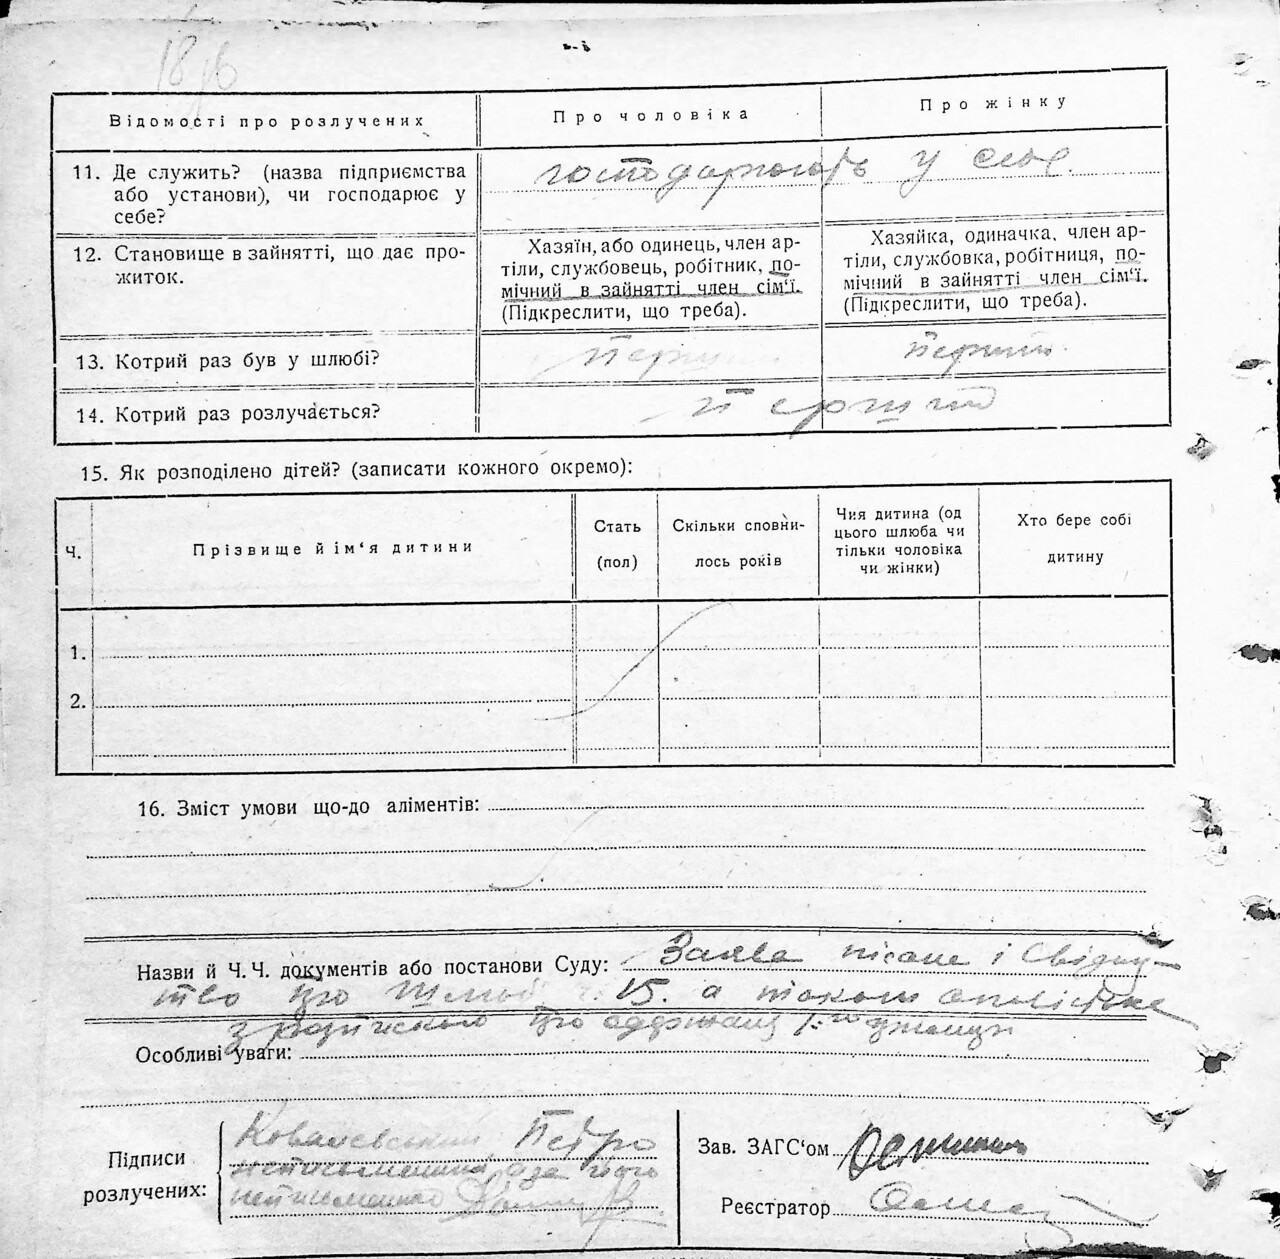 18 зв
Відомості про розлучених
Про чоловіка
Про жінку
11. Де служить? (назва підприємства
або установи), чи господарює у
себе?
господарюють у себе.
12. Становище в зайнятті, що дає про-
житок.
Хазяїн, або одинець, член ар-
тіли, службовець, робітник, по-
мічний в зайнятті член сім‘ї.
(Підкреслити, що треба).
Хазяйка, одиначка, член ар-
тіли, службовка, робітниця, по-
мічний в зайнятті член сім‘ї.
(Підкреслити, що треба).
13. Котрий раз був у шлюбі?
Перший
Перший
14. Котрий раз розлучається?
Перший
15. Як розподілено дітей? (записати кожного окремо):
Ч.
Прізвище й ім‘я дитини
Стать
(пол)
Скільки сповни-
лось років
Чия дитина (од
цього шлюба чи
тільки чоловіка
чи жінки)
Хто бере собі
дитину
1.
2.
16. Зміст умови що-до аліментів:
Назви й Ч.Ч. документів або постанови Суду: Заява і Свідоц-
тво про Шлюб 15. а також
з розпискою про
Особливі уваги:
Підписи
розлучених:
Ковалевський Петро
неписьменний, а за його
неписьменно
Зав. ЗАГС‘ом
Реєстратор